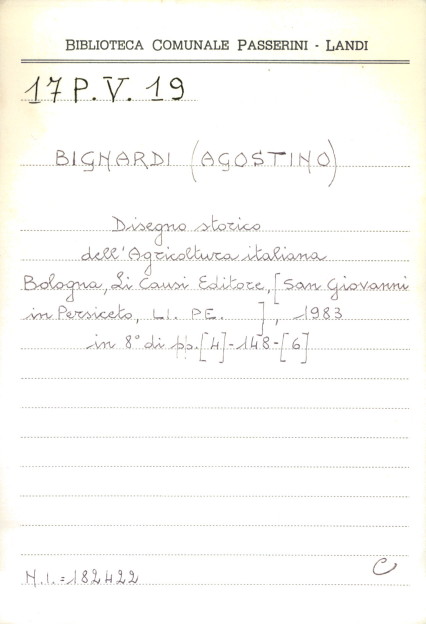 BIBLIOTECA COMUNALE PASSERINI - LANDI
17 P. V. 19
BIGNARDI (AGOSTINO)
Disegno storico
dell'Agricoltura italiana
Bologna, Li Causi Editore, [San Giovanni
in Persiceto, LI. PE. ], 1983
in 8° di pp. [4]-148-[6]
N.I. = 182422
C